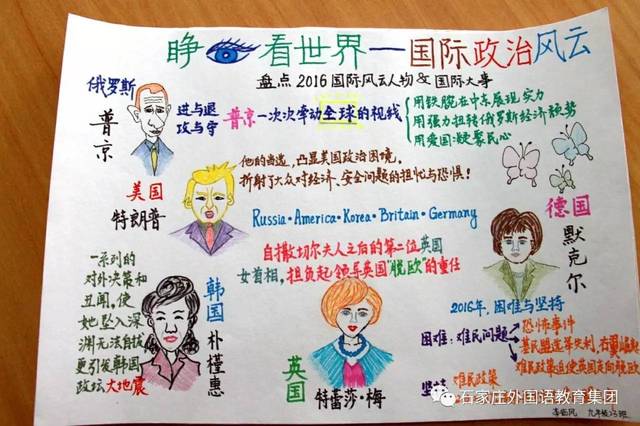 睁 看世界—国际政治风云
盘点2016国际风云人物&国际大事
俄罗斯
普京
进与退
攻与守
普京一次次牵动全球的视线
用铁腕在中东展现实力
用强力扭转俄罗斯经济颓势
用爱国凝聚民心
美国
特朗普
他的当选，凸显美国政治困境。
折射了大众对经济、安全问题的担忧与恐惧！
Russia·America·Korea·Britain·Germany
德国
默克尔
自撒切尔夫人之后的第二位英国
女首相，担负起领导英国"脱欧"的重任
一系列的
对外决策和
丑闻，使
她坠入深
渊无法自拔
更引发韩国
政坛大地震
韩国
朴槿惠
英国
特蕾莎·梅
2016年，困难与坚持
困难：难民问题
恐怖事件
基民盟选举失利，右翼崛起
难民政策迫使英国走向脱欧
坚持
难民政策
石家庄外国语教育集团
九年级23班